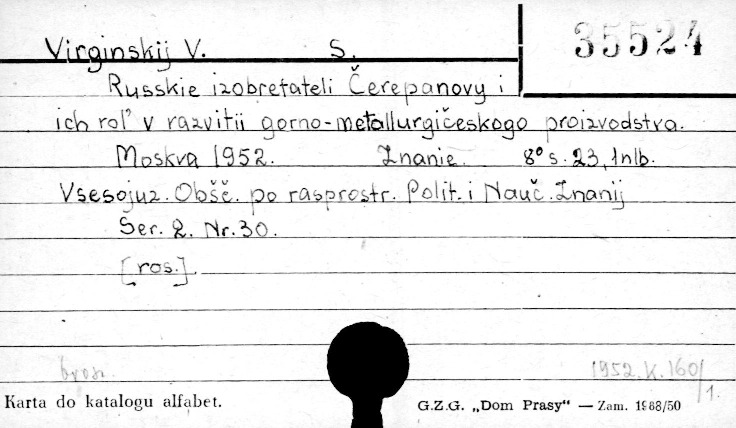 35524
Virginskij V. S.
Russkie izobretateli Čerepanovy i
ich rol' v razvitii gorno-metallurgičeskogo proizvodstva.
Moskva 1952. Znanie. 8° s. 23, 1nlb.
Vsesojuz. Obšč. po rasprostr. Polit. i Nauč. Znanij
Ser. 2. Nr. 30.
[ros.]
brosz.
1952.K.160/1.
Karta do katalogu alfabet.
G.Z.G. „Dom Prasy“ — Zam. 1968/50